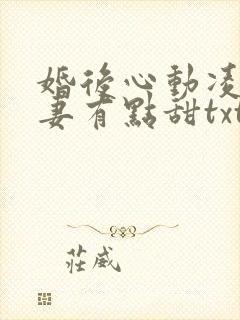 婚後心動凌
妻有點甜txt
莊威